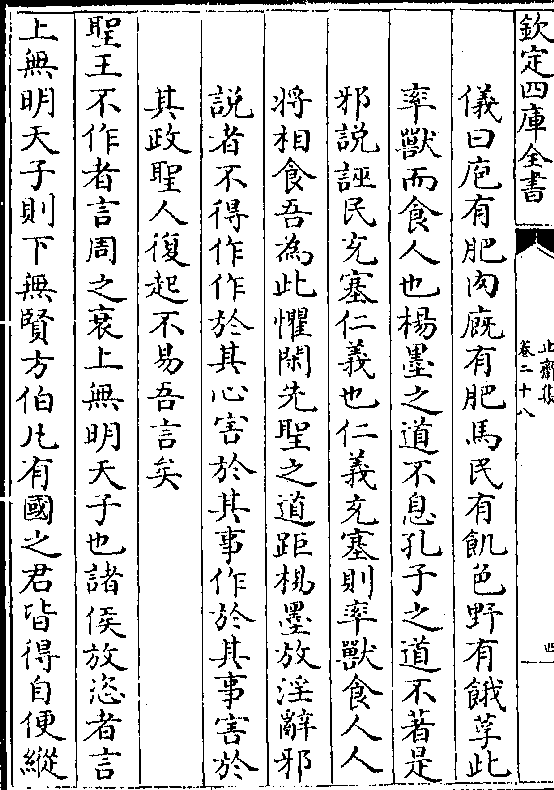 欽定四庫全書
止齋集
卷二十八
四
儀曰庖有肥肉廐有肥馬民有飢色野有餓莩此
率獸而食人也楊墨之道不息孔子之道不著是
邪説誣民充塞仁義也仁義充塞則率獸食人人
將相食吾為此懼閑先聖之道距楊墨放淫辭邪
説者不得作作於其心害於其事作於其事害於
其政聖人復起不易吾言矣
聖王不作者言周之衰上無明天子也諸侯放恣者言
上無明天子則下無賢方伯凡有國之君皆得自便縱